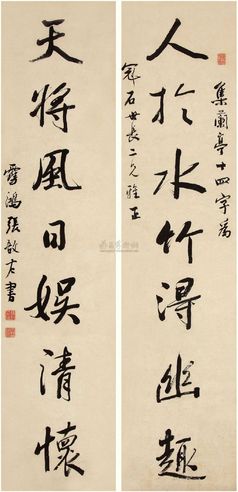 集蘭亭十四字為
冠石世長二兄雅正
人於水竹得幽趣
天將風日娛清懷
霽鴻張啟左書